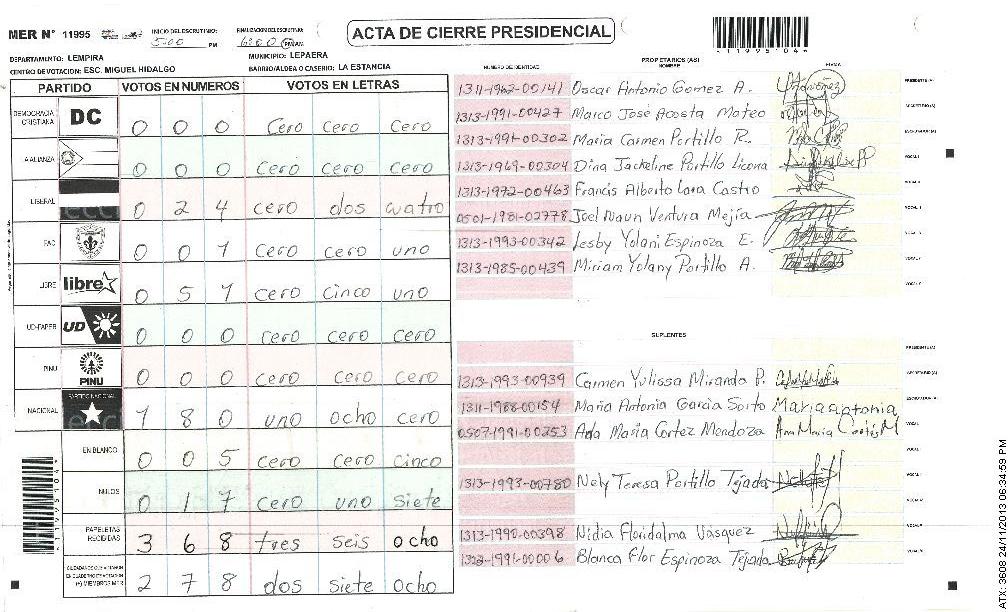 MER Nº 11995
INICIO DEL ESCRUTINIO: 5:00 PM
FINALIZACION DEL ESCRUTINIO: 6:00 PM AM
ACTA DE CIERRE PRESIDENCIAL
11995104
DEPARTAMENTO: LEMPIRA
MUNICIPIO: LEPAERA
CENTRO DE VOTACION: ESC. MIGUEL HIDALGO
BARRIO/ALDEA O CASERIO: LA ESTANCIA
PARTIDO VOTOS EN NUMEROS VOTOS EN LETRAS
DEMOCRACIA CRISTIANA DC 0 0 0 Cero cero cero
ALIANZA 0 0 0 cero cero cero
LIBERAL 0 2 4 cero dos cuatro
PAC 0 0 1 cero cero uno
LIBRE libre 0 5 1 cero cinco uno
UD-FAPER UD 0 0 0 cero cero cero
PINU PINU 0 0 0 cero cero cero
NACIONAL PARTIDO NACIONAL 1 8 0 uno ocho cero
EN BLANCO 0 0 5 cero cero cinco
NULOS 0 1 7 cero uno siete
PAPELETAS RECIBIDAS 3 6 8 tres seis ocho
CIUDADANOS QUE VOTARON EN CUADERNO DE VOTACION (+) MIEMBROS MER 2 7 8 dos siete ocho
11995104
PROPIETARIOS (AS)
NUMERO DE IDENTIDAD NOMBRE FIRMA
1311-1962-00141 Oscar Antonio Gomez A. PRESIDENTE(A)
1313-1991-00427 Marco José Acosta Mateo SECRETARIO(A)
1313-1991-00302 Maria Carmen Portillo R. ESCRUTADOR(A)
1313-1969-00304 Dina Jackeline Portillo Licona VOCAL I
1313-1972-00463 Francis Alberto Lara Castro
0501-1981-02778 Joel Naun Ventura Mejía
1313-1993-00342 Lesby Yolani Espinoza E.
1313-1985-00439 Miriam Yolany Portillo A.
SUPLENTES
PRESIDENTE(A)
1313-1993-00939 Carmen Yulissa Miranda P. SECRETARIO(A)
1311-1988-00154 Maria Antonia Garcia Sorto Maria antonia ESCRUTADOR(A)
0507-1991-00253 Ada Maria Cortez Mendoza Ana Maria Cortés M
1313-1993-00780 Nely Teresa Portillo Tejada
1313-1990-00398 Nidia Floridalma Vasquez
1322-1991-00006 Blanca Flor Espinoza Tejada
ATX: 3608 24/11/2013 06:34:59 PM